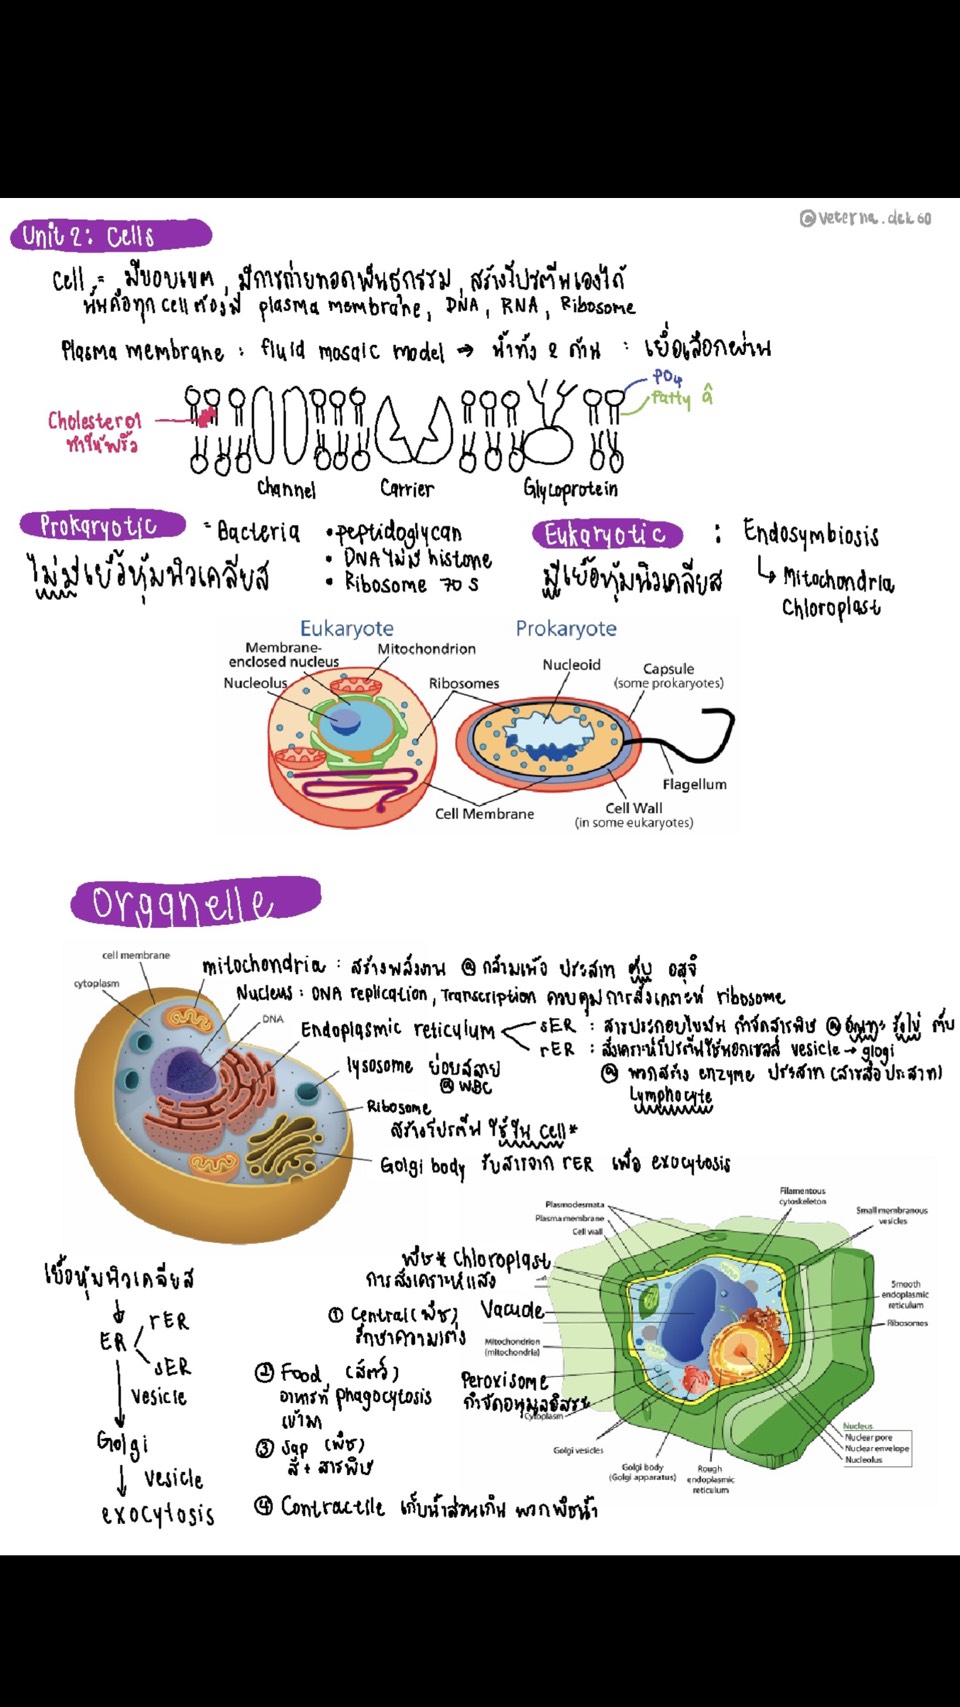 © veterna.dek60
Unit 2: Cells
Cell = มีขอบเขต, มีการถ่ายทอดพันธุกรรม, สร้างโปรตีนเองได้
นั่นคือทุก cell ต้องมี plasma membrane, DNA, RNA, Ribosome
Plasma membrane : fluid mosaic model → น้ำทั้ง 2 ด้าน : เยื่อเลือกผ่าน
PO4
fatty â
Cholesterol
ทำให้พริ้ว
Channel
Carrier
Glycoprotein
Prokaryotic = Bacteria
• peptidoglycan
• DNA ไม่มี histone
• Ribosome 70 s
ไม่มีเยื่อหุ้มนิวเคลียส
Eukaryotic : Endosymbiosis
↳ Mitochondria
Chloroplast
มีเยื่อหุ้มนิวเคลียส
Eukaryote
Prokaryote
Membrane-
enclosed nucleus
Mitochondrion
Nucleolus
Ribosomes
Nucleoid
Capsule
(some prokaryotes)
Flagellum
Cell Membrane
Cell Wall
(in some eukaryotes)
Organelle
cell membrane
cytoplasm
mitochondria : สร้างพลังงาน @ กล้ามเนื้อ ประสาท ตับ อสุจิ
Nucleus : DNA replication, Transcription ควบคุมการสังเคราะห์ ribosome
DNA
Endoplasmic reticulum
sER : สารประกอบไขมัน กำจัดสารพิษ @ อัณฑะ รังไข่ ตับ
rER : สังเคราะห์โปรตีนใช้นอกเซลล์ vesicle → glogi
@ พวกสร้าง enzyme ประสาท (สารสื่อประสาท)
Lymphocyte
lysosome ย่อยสลาย
@ WBC
Ribosome
สร้างโปรตีน ใช้ใน cell*
Golgi body รับสารจาก rER เพื่อ exocytosis
เยื่อหุ้มนิวเคลียส
↓
ER
rER
sER
↓ vesicle
Golgi
↓ vesicle
exocytosis
พืช* Chloroplast
การสังเคราะห์แสง
Vacuole
① Central (พืช)
รักษาความเต่ง
② Food (สัตว์)
อาหารที่ phagocytosis
เข้ามา
③ Sap (พืช)
สี + สารพิษ
④ Contractile เก็บน้ำส่วนเกิน พวกพืชน้ำ
Peroxisome
กำจัดอนุมูลอิสระ
Plasmodesmata
Plasma membrane
Cell wall
Filamentous
cytoskeleton
Small membranous
vesicles
Smooth
endoplasmic
reticulum
Ribosomes
Mitochondrion
(mitochondria)
Cytoplasm
Golgi vesicles
Golgi body
(Golgi apparatus)
Rough
endoplasmic
reticulum
Nucleus
Nuclear pore
Nuclear envelope
Nucleolus